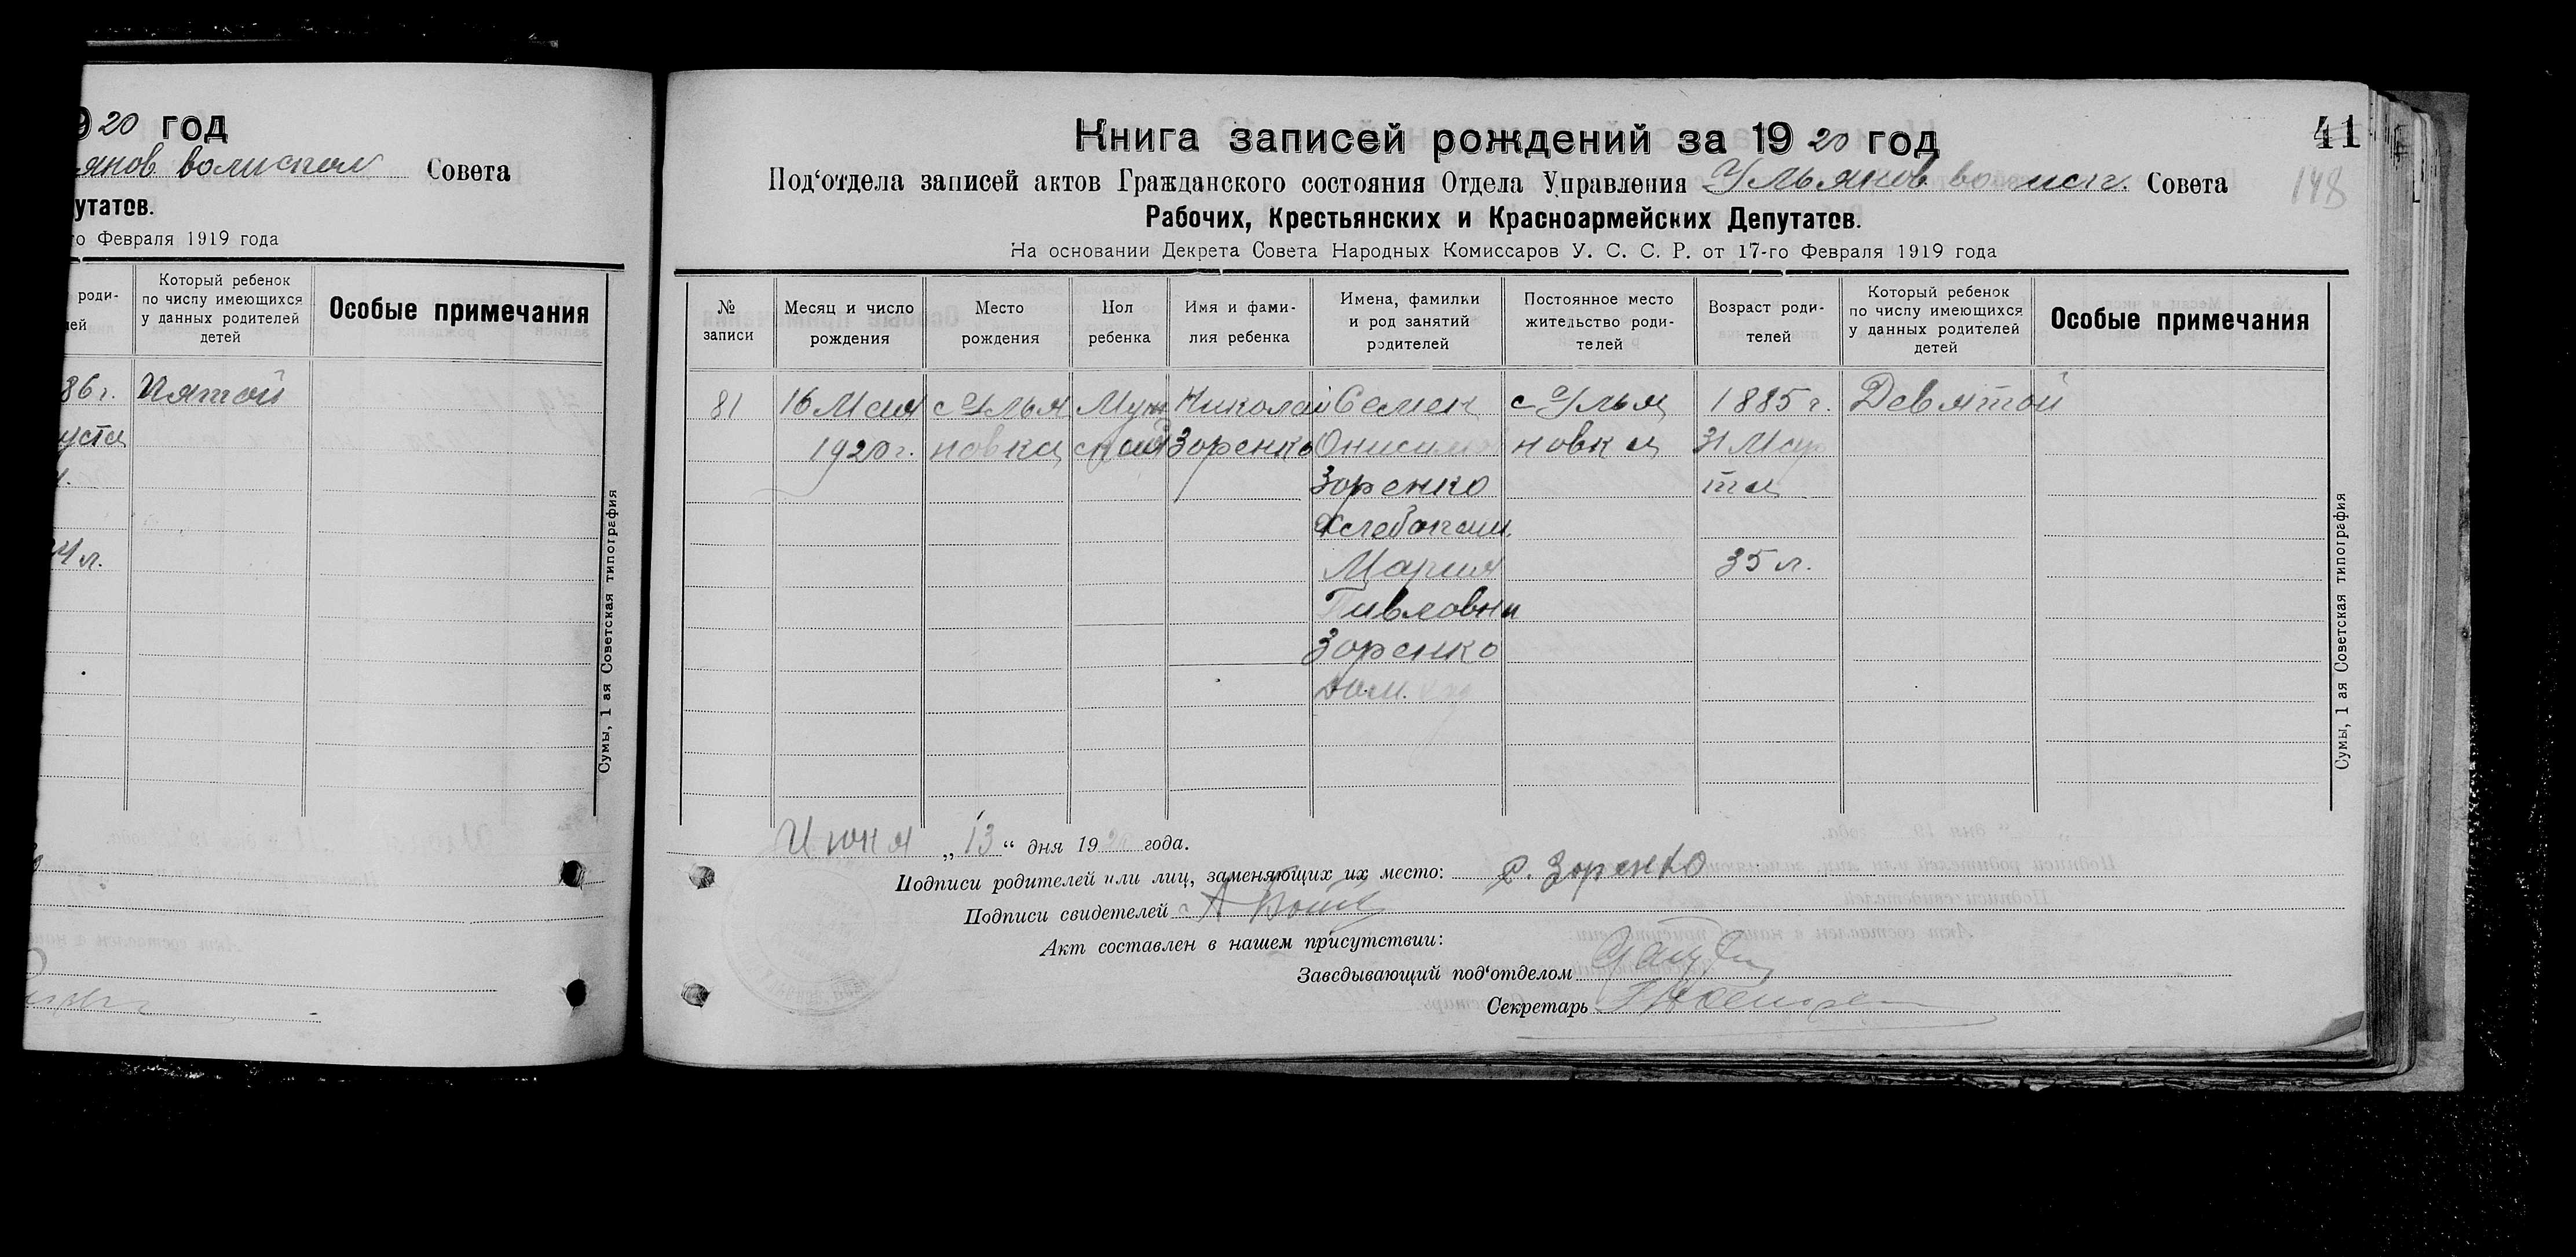 20 год
янов. волиспол Совета
утатов.
го Февраля 1919 года
роди-
лей
Который ребенок
по числу имеющихся
у данных родителей
детей
Особые примечания
86 г. Пятой
уста
4 л.
Сумы, 1 ая Советская типография
41
148
Книга записей рождений за 1920 год
Под‘отдела записей актов Гражданского состояния Отдела Управления Ульянов. Совета
Рабочих, Крестьянских и Красноармейских Депутатов.
На основании Декрета Совета Народных Комиссаров У. С. С. Р. от 17-го Февраля 1919 года
№
записи
Месяц и число
рождения
Место
рождения
Пол
ребенка
Имя и фами-
лия ребенка
Имена, фамилки
и род занятий
родителей
Постоянное место
жительство роди-
телей
Возраст роди-
телей
Который ребенок
по числу имеющихся
у данных родителей
детей
Особые примечания
81 16 Мая с Улья Муж Николай Семен с Улья 1885 г. Девятой
1920 г. новка ской Зоренко Онисим новка 31 Мар
Зоренко та
Хлебопаш.
Мария 35 л.
Павловна
Зоренко
дом.
Сумы, 1 ая Советская типография
Июня „13“ дня 1920 года.
Подписи родителей или лиц, заменяющих их место: С. Зоренко
Подписи свидетелей
Акт составлен в нашем присутствии:
Заведывающий под‘отделом
Секретарь